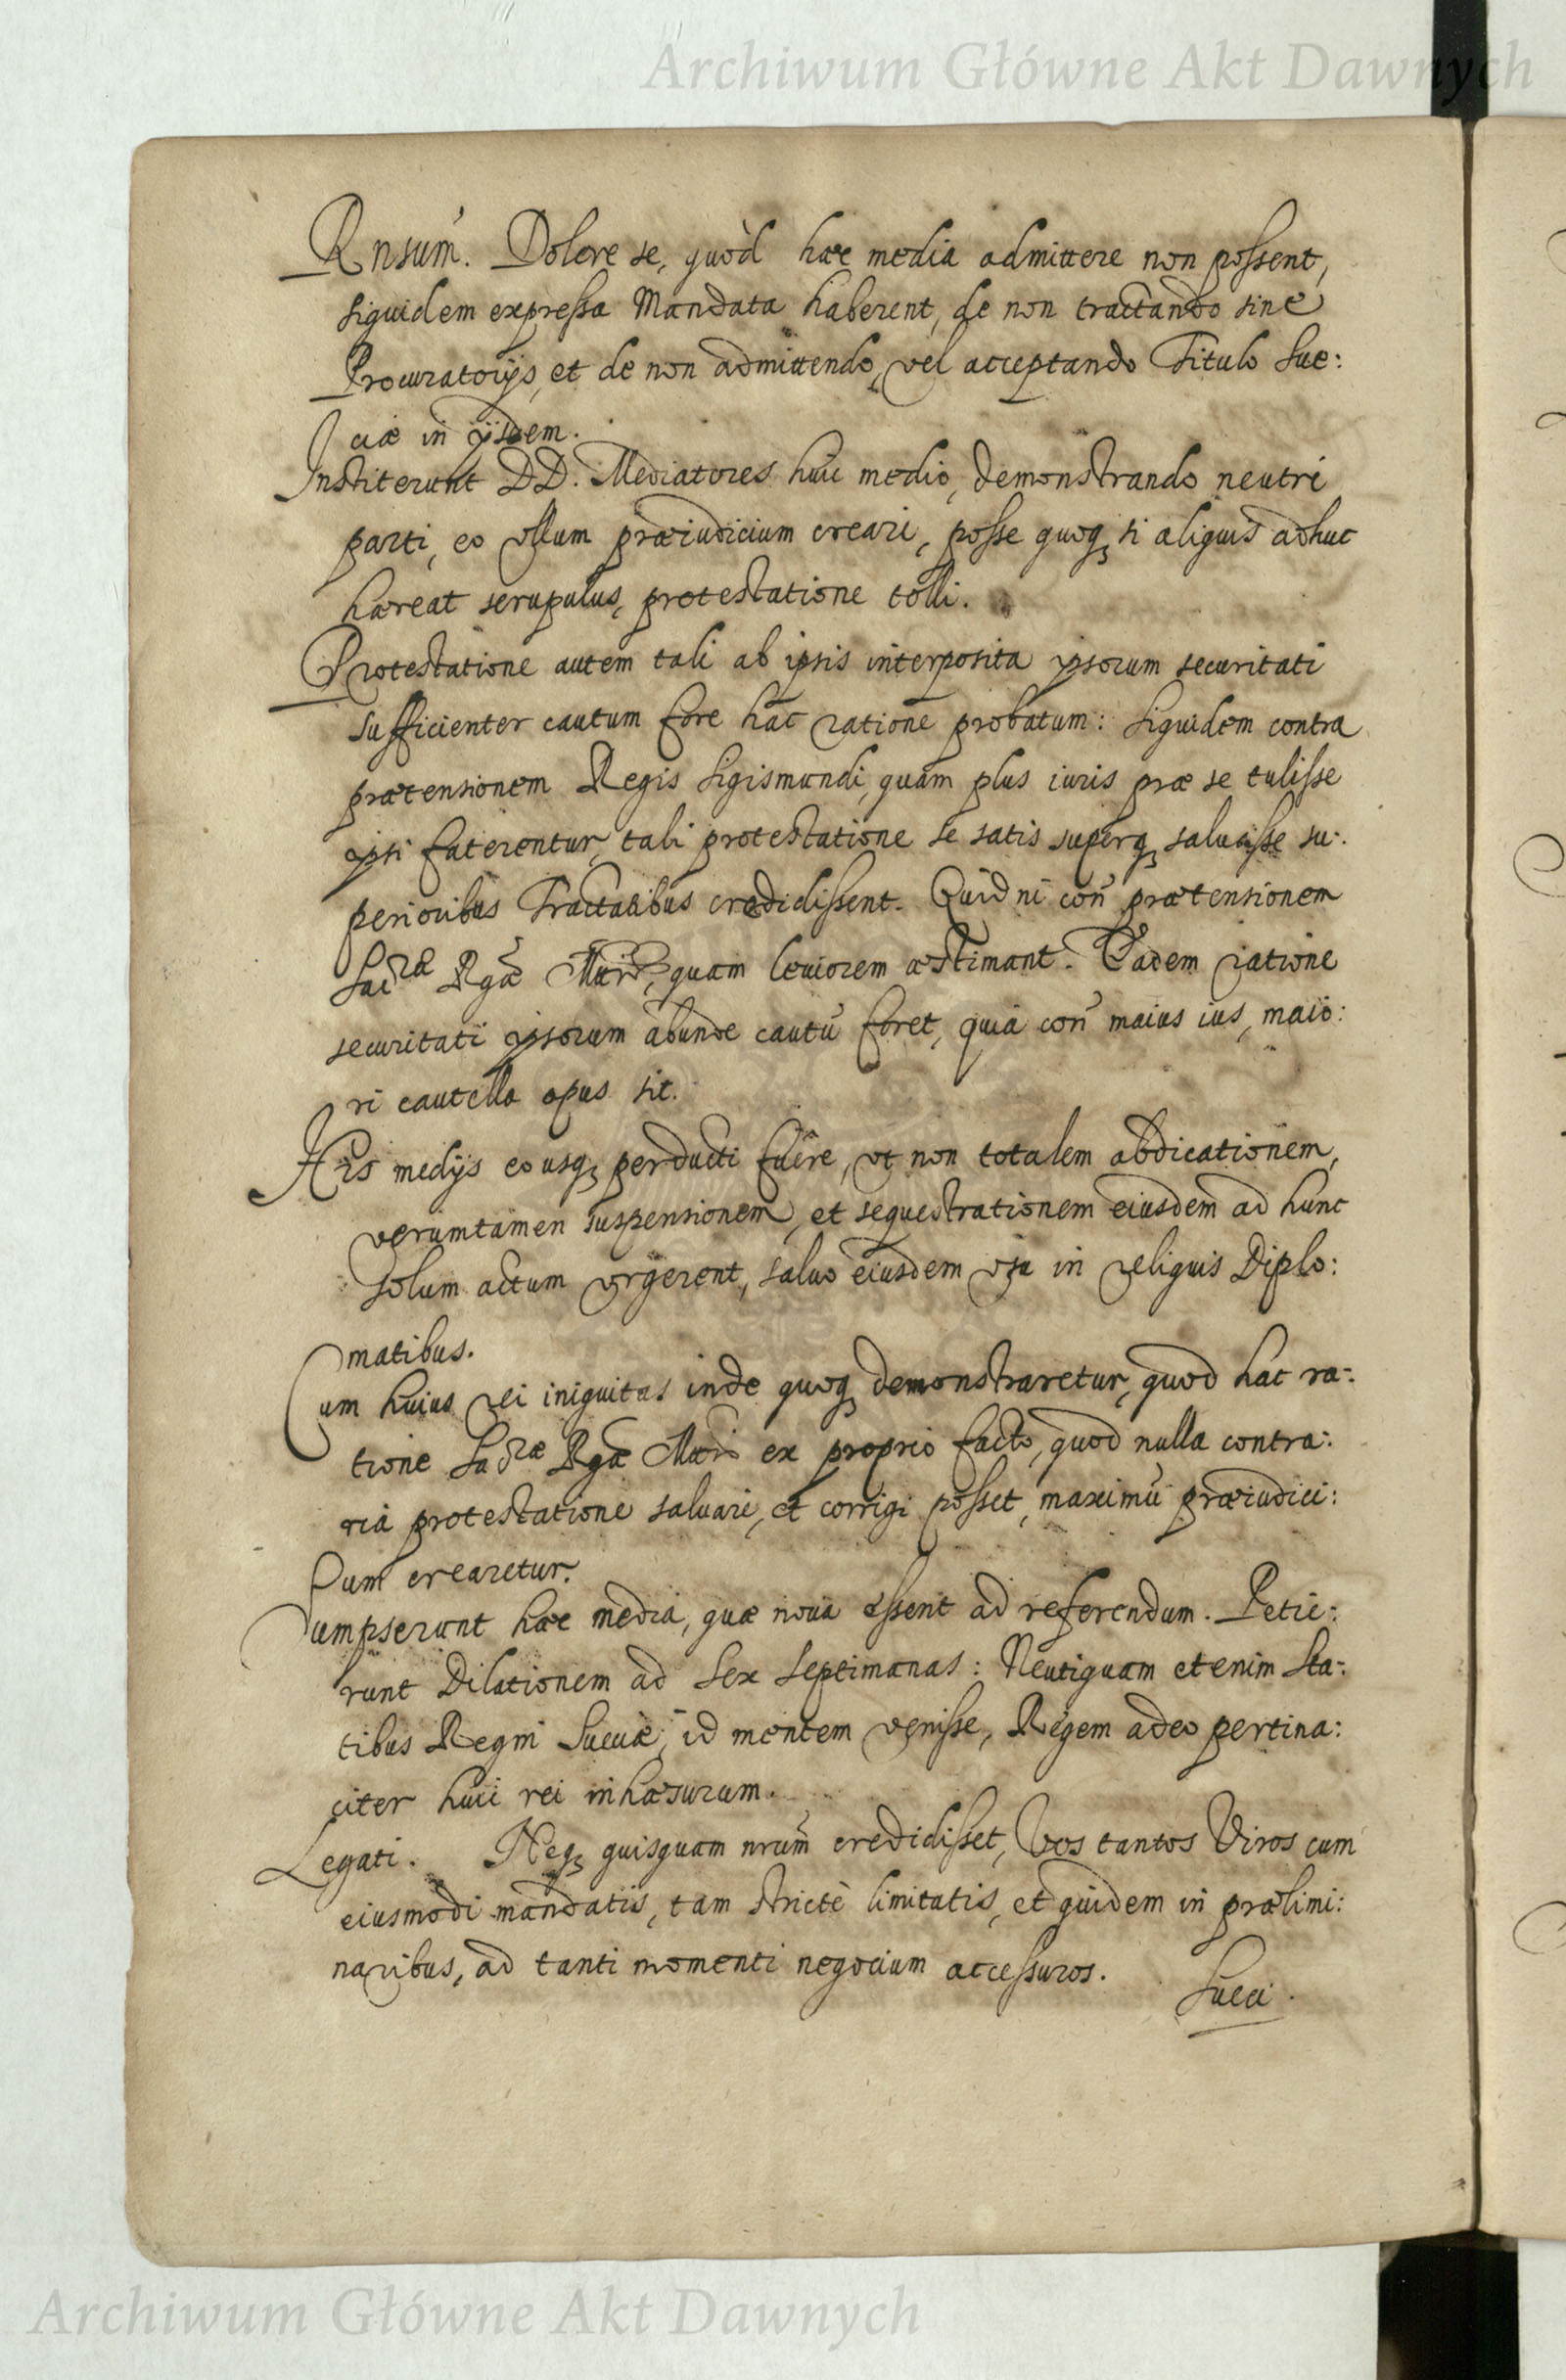 Archiwum Główne Akt Dawnych
Rnsum. Dolere se, quòd haec media admittere non possent,
siquidem expressa Mandata haberent, de non tractando sine
Procuratorijs, et de non admittendo, vel acceptando Titulo Sue:
ciæ in ijsdem.
Institerunt DD. Mediatores huic medio, demonstrando neutri
parti, eo vllum præiudicium creari, posse quoq, si aliquis adhuc
hæreat scrupulus, protestatione tolli.
Protestatione autem tali ab ipsis interposita ipsorum securitati
sufficienter cautum fore hac ratione probatum: Siquidem contra
prætensionem Regis Sigismundi, quam plus iuris præ se tulisse
ipsi faterentur, tali protestatione se satis superq, saluasse su:
perioribus Tractatibus credidissent. Quidni con prætensionem
Sacræ Rgæ quam leuiorem æstimant. Eadem ratione
securitati ipsorum abunde cautu foret, quia con maius ius, maio:
ri cautella opus sit.
His medijs eo usq, perducti fuêre, vt non totalem abdicationem,
verumtamen suspensionem, et sequestrationem eiusdem ad hunc
solum actum vrgerent, saluo eiusdem vsu in reliquis Diplo:
matibus.
Cum huius rei iniquitas inde quoq, demonstraretur, quod hac ra:
tione Sacræ Rgæ ex proprio facto, quod nulla contra:
ria protestatione saluari, et corrigi posset, maximu præiudici:
um crearetur.
Sumpserunt hæc media, quæ noua essent ad referendum. Petie:
runt Dilationem ad Sex Septimanas: Neutiquam etenim Sta:
tibus Regni Sueciæ, id mentem venisse, Regem adeo pertina:
citer huic rei inhæsurum.
Legati. Neq, quisquam nrum credidisset, Vos tantos Viros cum
eiusmodi mandatis, tam strictè limitatis, et quidem in prælimi:
naribus, ad tanti momenti negocium accessuros.
Sueci.
Archiwum Główne Akt Dawnych